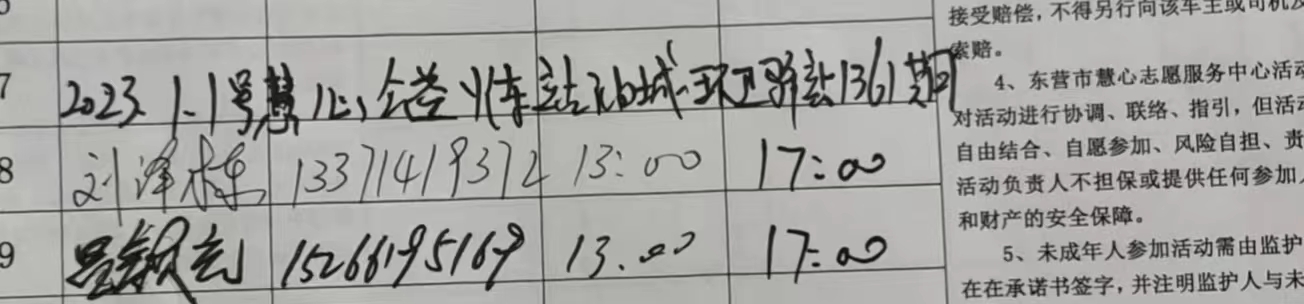 7 2023.1.1号慧心公益火车站油城环卫驿站1361期
8 刘泽栋 13371419372 13:00 17:00
9 15266195169 13.00 17:00
接受赔偿，不得另行向该车主或司机及
索赔。
4、东营市慧心志愿服务中心活动
对活动进行协调、联络、指引，但活动
自由结合、自愿参加、风险自担、责
活动负责人不担保或提供任何参加人
和财产的安全保障。
5、未成年人参加活动需由监护
在在承诺书签字，并注明监护人与未